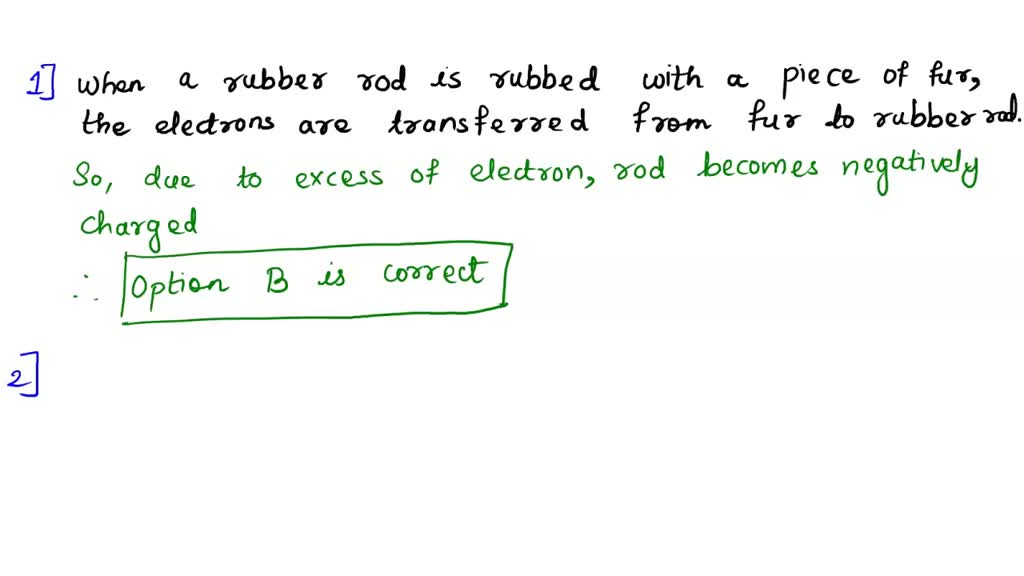 1] When a rubber rod is rubbed with a piece of fur,
the electrons are transferred from fur to rubber rod.
So, due to excess of electron, rod becomes negatively
charged
∴ Option B is correct
2]